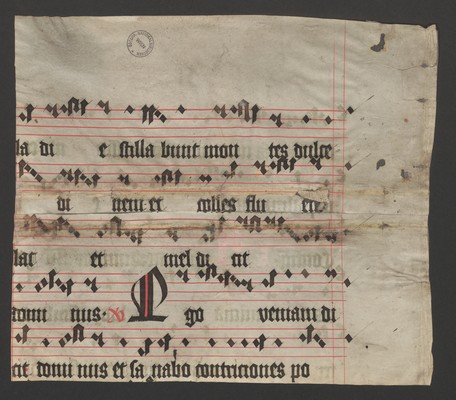 la di e stilla bunt mon tes dulce
di nem et colles flu ent
lac et mel di cit
domi nus. Ego veniam di
cit domi nus et sa nabo contriciones po